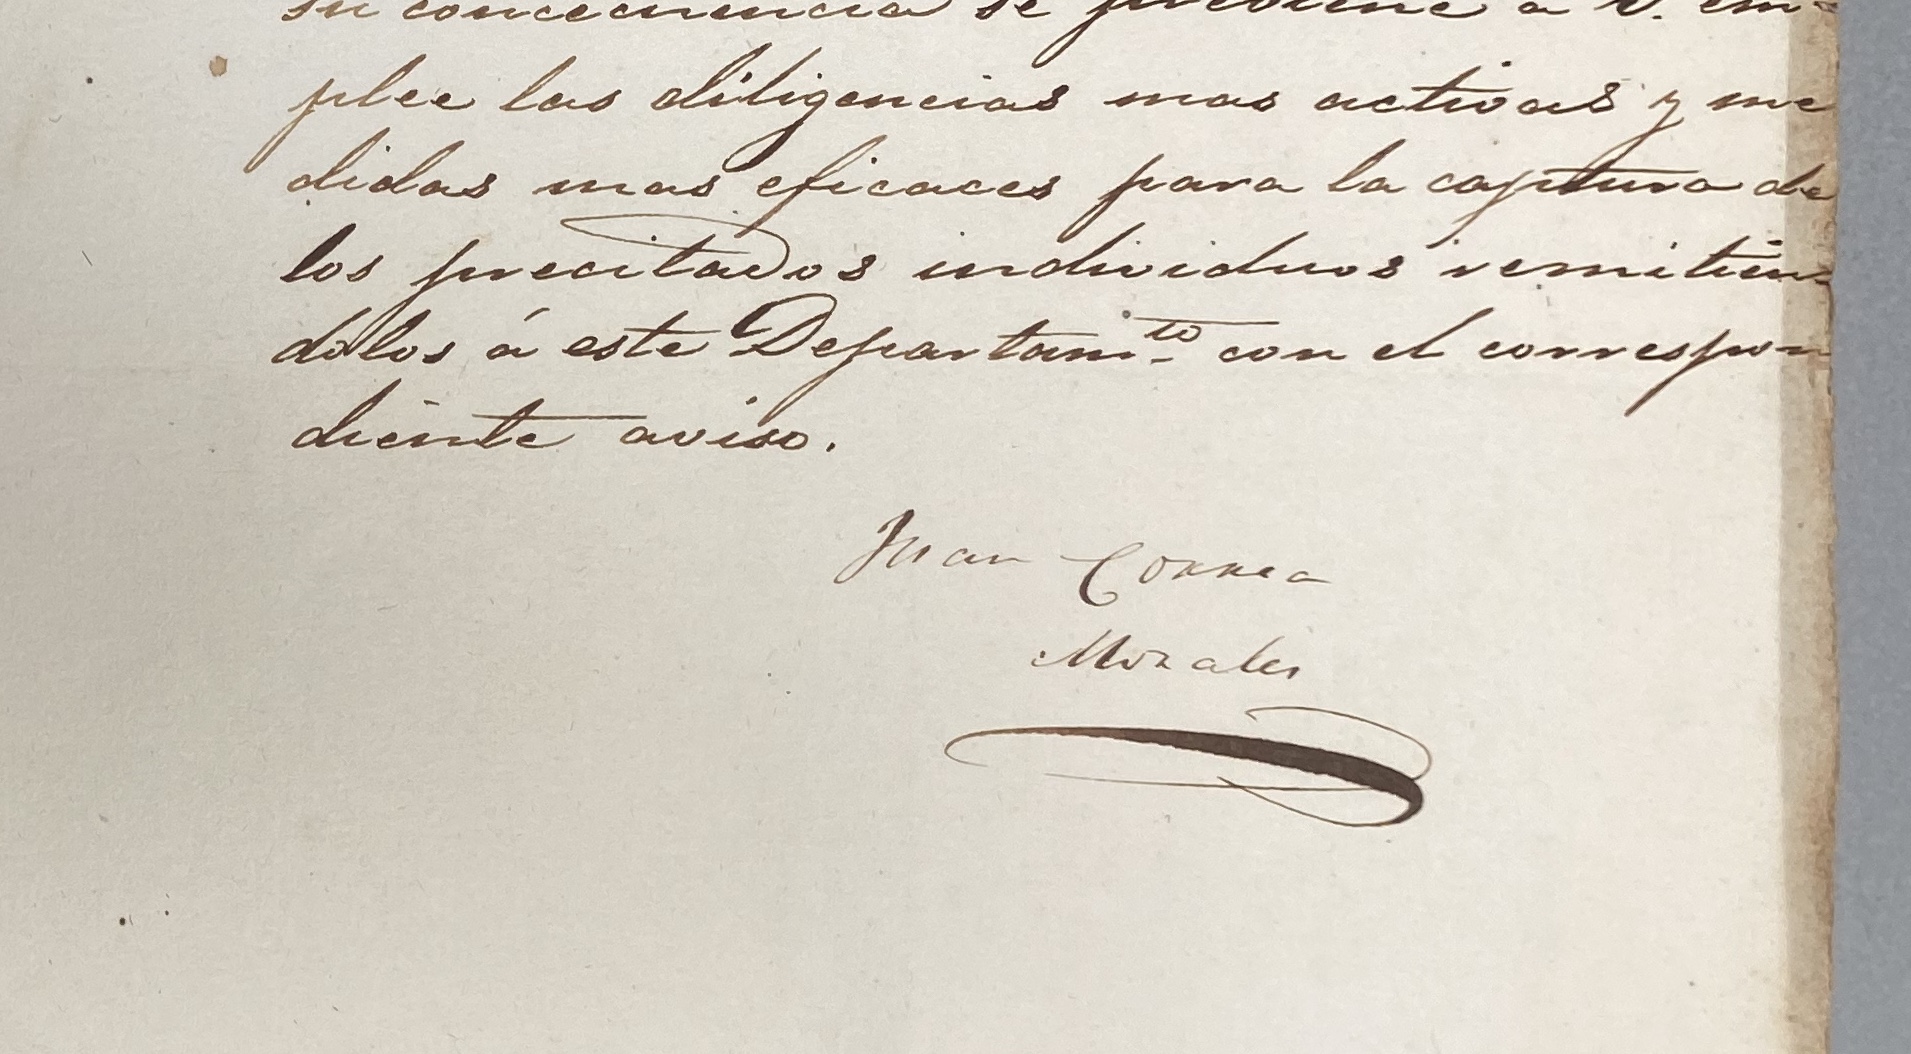 su concecuencia se previene a V. em-
plee las diligencias mas activas y me
didas mas eficaces para la captura de
los precitados individuos remitien-
dolos á este Departam.to con el correspon
diente aviso.
Juan Correa
Morales